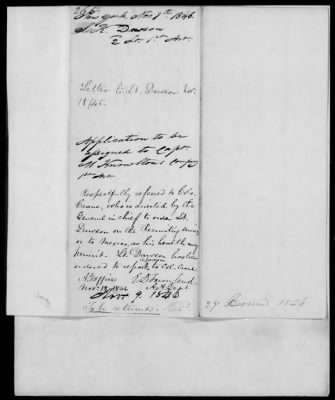 New York Nov 7th 1846.
S. K. Dawson
2 Lt. 1st Art.
Letter to Lt. Dawson Nov.
18/46.
Application to be
assigned to Capt
Knowlton's Comp
1st Art
Respectfully referred to Col.
Crane, who is directed by the
General in chief to order Lt.
Dawson on the Recruiting service
or to Mexico, as his health may
permit. Lt. Dawson has been
ordered to report to Col. Crane
A. G. Office E D Townsend
Nov. 18, 1846 As. Ad. Gen
Nov 9. 1846
To be returned